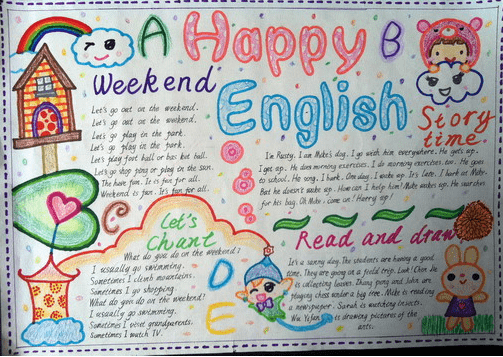 A
Happy
B
English
Weekend
Let's go out on the weekend.
Let's go out on the weekend.
Let's go play in the park.
Let's go play in the park.
Let's play foot ball or bas ket ball.
Let's go shop ping or play in the sun.
The have fun. It is fun for all.
Weekend is fun. It's fun for all.
Story
time.
I'm Rusty. I am Mike's dog. I go with him everywhere. He gets up.
I get up. He does morning exercises. I do morning exercises, too. He goes
to school. He sing. I bark. One day, I wake up. It's late. I bark at Mike.
But he doesn't wake up. How can I help him? Mike wakes up. He searches
for his bag. Oh Mike, come on! Hurry up!
C
Let's
Chant
What do you do on the weekend?
I usually go swimming.
Sometimes I climb mountains.
Sometimes I go shopping.
What do you do on the weekend?
I usually go swimming.
Sometimes I visit grandparents.
Sometimes I watch TV.
D
E
Read and draw
It's a sunny day. The students are having a good
time. They are on a field trip. Look! Chen Jie
is collecting leaves. Zhang Peng and John are
playing chess under a big tree. Mike is reading
a newspaper. Sarah is watching insects.
Wu Yifan is drawing pictures of the
ants.